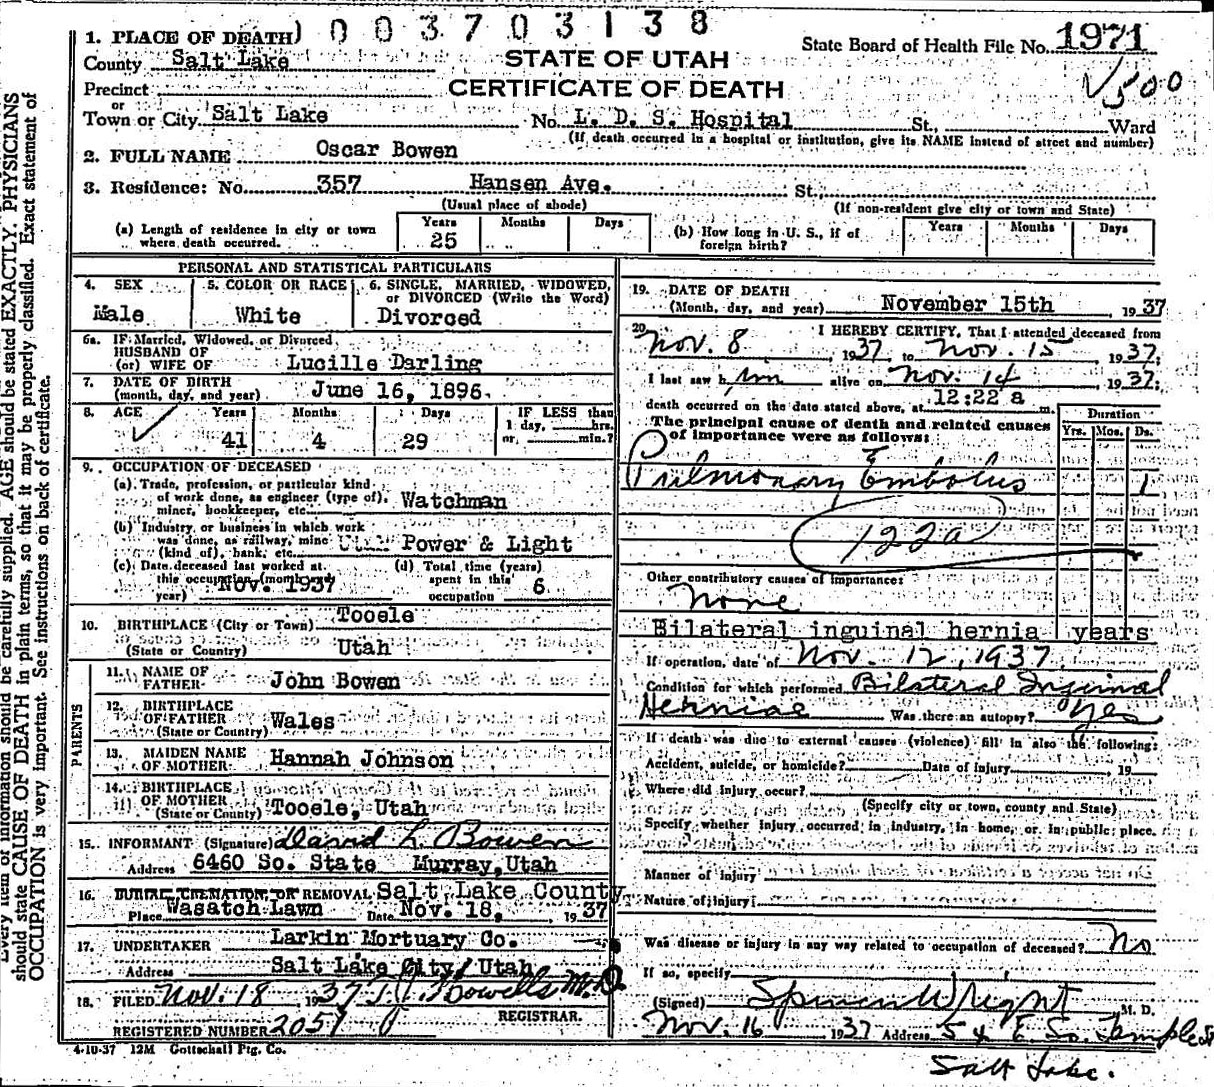 003703138
1. PLACE OF DEATH
State Board of Health File No. 1971
County Salt Lake
STATE OF UTAH
√500
Precinct
CERTIFICATE OF DEATH
or
Town or City Salt Lake No. L. D. S. Hospital St., Ward
(If death occurred in a hospital or institution, give its NAME instead of street and number)
2. FULL NAME Oscar Bowen
3. Residence: No. 357 Hansen Ave. St.,
(Usual place of abode) (If non-resident give city or town and State)
(a) Length of residence in city or town where death occurred. Years 25 Months Days
(b) How long in U. S., if of foreign birth? Years Months Days
PERSONAL AND STATISTICAL PARTICULARS
4. SEX 5. COLOR OR RACE 6. SINGLE, MARRIED, WIDOWED, or DIVORCED (Write the Word)
Male White Divorced
6a. IF Married, Widowed, or Divorced
HUSBAND OF
(or) WIFE OF Lucille Darling
7. DATE OF BIRTH
(month, day, and year) June 16, 1896.
8. AGE Years Months Days IF LESS than
1 day, hrs.
√ 41 4 29 or, min.?
9. OCCUPATION OF DECEASED
(a) Trade, profession, or particular kind
of work done, as engineer (type of),
miner, bookkeeper, etc. Watchman
(b) Industry or business in which work
was done, as railway, mine
(kind of), bank, etc. Utah Power & Light
(c) Date deceased last worked at
this occupation (month and
year) Nov. 1937
(d) Total time (years)
spent in this
occupation 6
10. BIRTHPLACE (City or Town) Tooele
(State or Country) Utah
PARENTS
11. NAME OF
FATHER John Bowen
12. BIRTHPLACE
OF FATHER Wales
(State or Country)
13. MAIDEN NAME
OF MOTHER Hannah Johnson
14. BIRTHPLACE
OF MOTHER
(State or Country) Tooele, Utah
15. INFORMANT (Signature) David L. Bowen
Address 6460 So. State Murray, Utah
16. BURIAL, CREMATION, OR REMOVAL Salt Lake County
Place Wasatch Lawn Date Nov. 18, 1937
17. UNDERTAKER Larkin Mortuary Co.
Address Salt Lake City, Utah
18. FILED Nov. 18, 1937 T. J. Howells M.D.
REGISTRAR.
REGISTERED NUMBER 2057
4-10-37 12M Gottschall Ptg. Co.
19. DATE OF DEATH
(Month, day, and year) November 15th 1937
20. I HEREBY CERTIFY, That I attended deceased from
Nov. 8, 1937, to Nov. 15 1937;
I last saw him alive on Nov. 14 1937;
death occurred on the date stated above, at 12:22 a m.
The principal cause of death and related causes
of importance were as follows:
Duration
Yrs. Mos. Ds.
Pulmonary Embolus 1
122a
Other contributory causes of importance:
None
Bilateral inguinal hernia years
If operation, date of Nov. 12, 1937.
Condition for which performed Bilateral Inguinal
Herniae Was there an autopsy? Yes
If death was due to external causes (violence) fill in also the following:
Accident, suicide, or homicide? Date of injury , 19
Where did injury occur?
(Specify city or town, county and State)
Specify whether injury occurred in industry, in home, or in public place.
Manner of injury
Nature of injury
Was disease or injury in any way related to occupation of deceased? No
If so, specify
(Signed) Spencer Wright M. D.
Nov. 16 1937 Address 54 E. So. Temple St
Salt Lake.
Every item of information should be carefully supplied. AGE should be stated EXACTLY. PHYSICIANS
should state CAUSE OF DEATH in plain terms, so that it may be properly classified. Exact statement of
OCCUPATION is very important. See instructions on back of certificate.